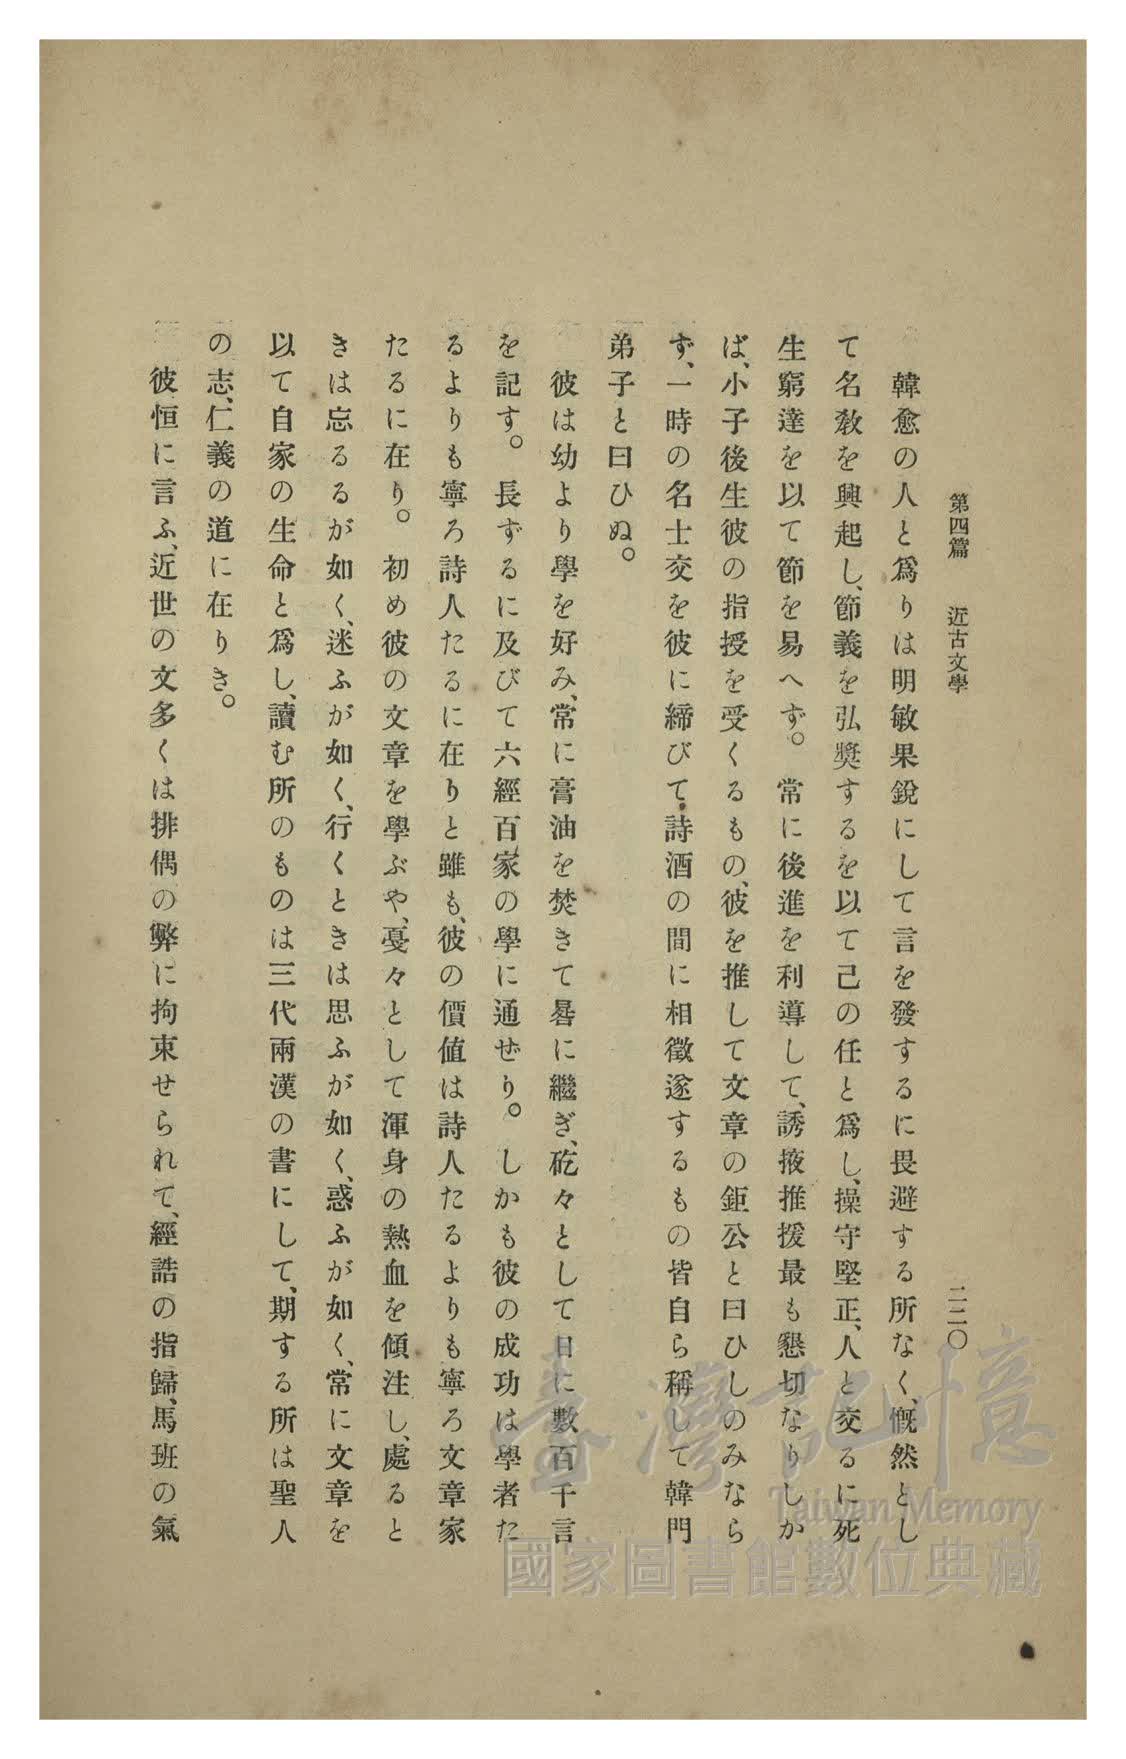 第四篇 近古文學 二二〇
韓愈の人と爲りは明敏果銳にして言を發するに畏避する所なく、慨然とし
て名敎を興起し、節義を弘奬するを以て己の任と爲し、操守堅正、人と交るに死
生窮達を以て節を易へず。常に後進を利導して、誘掖推援最も懇切なりしか
ば、小子後生彼の指授を受くるもの、彼を推して文章の鉅公と曰ひしのみなら
ず、一時の名士交を彼に締びて、詩酒の間に相徵逐するもの皆自ら稱して韓門
弟子と曰ひぬ。
彼は幼より學を好み、常に膏油を焚きて晷に繼ぎ、矻々として日に數百千言
を記す。長ずるに及びて六經百家の學に通ぜり。しかも彼の成功は學者た
るよりも寧ろ詩人たるに在りと雖も、彼の價値は詩人たるよりも寧ろ文章家
たるに在り。初め彼の文章を學ぶや、戞々として渾身の熱血を傾注し、處ると
きは忘るるが如く、迷ふが如く、行くときは思ふが如く、惑ふが如く、常に文章を
以て自家の生命と爲し、讀む所のものは三代兩漢の書にして、期する所は聖人
の志、仁義の道に在りき。
彼恒に言ふ、近世の文多くは排偶の弊に拘束せられて、經誥の指歸、馬班の氣
臺灣記憶
Taiwan Memory
國家圖書館數位典藏